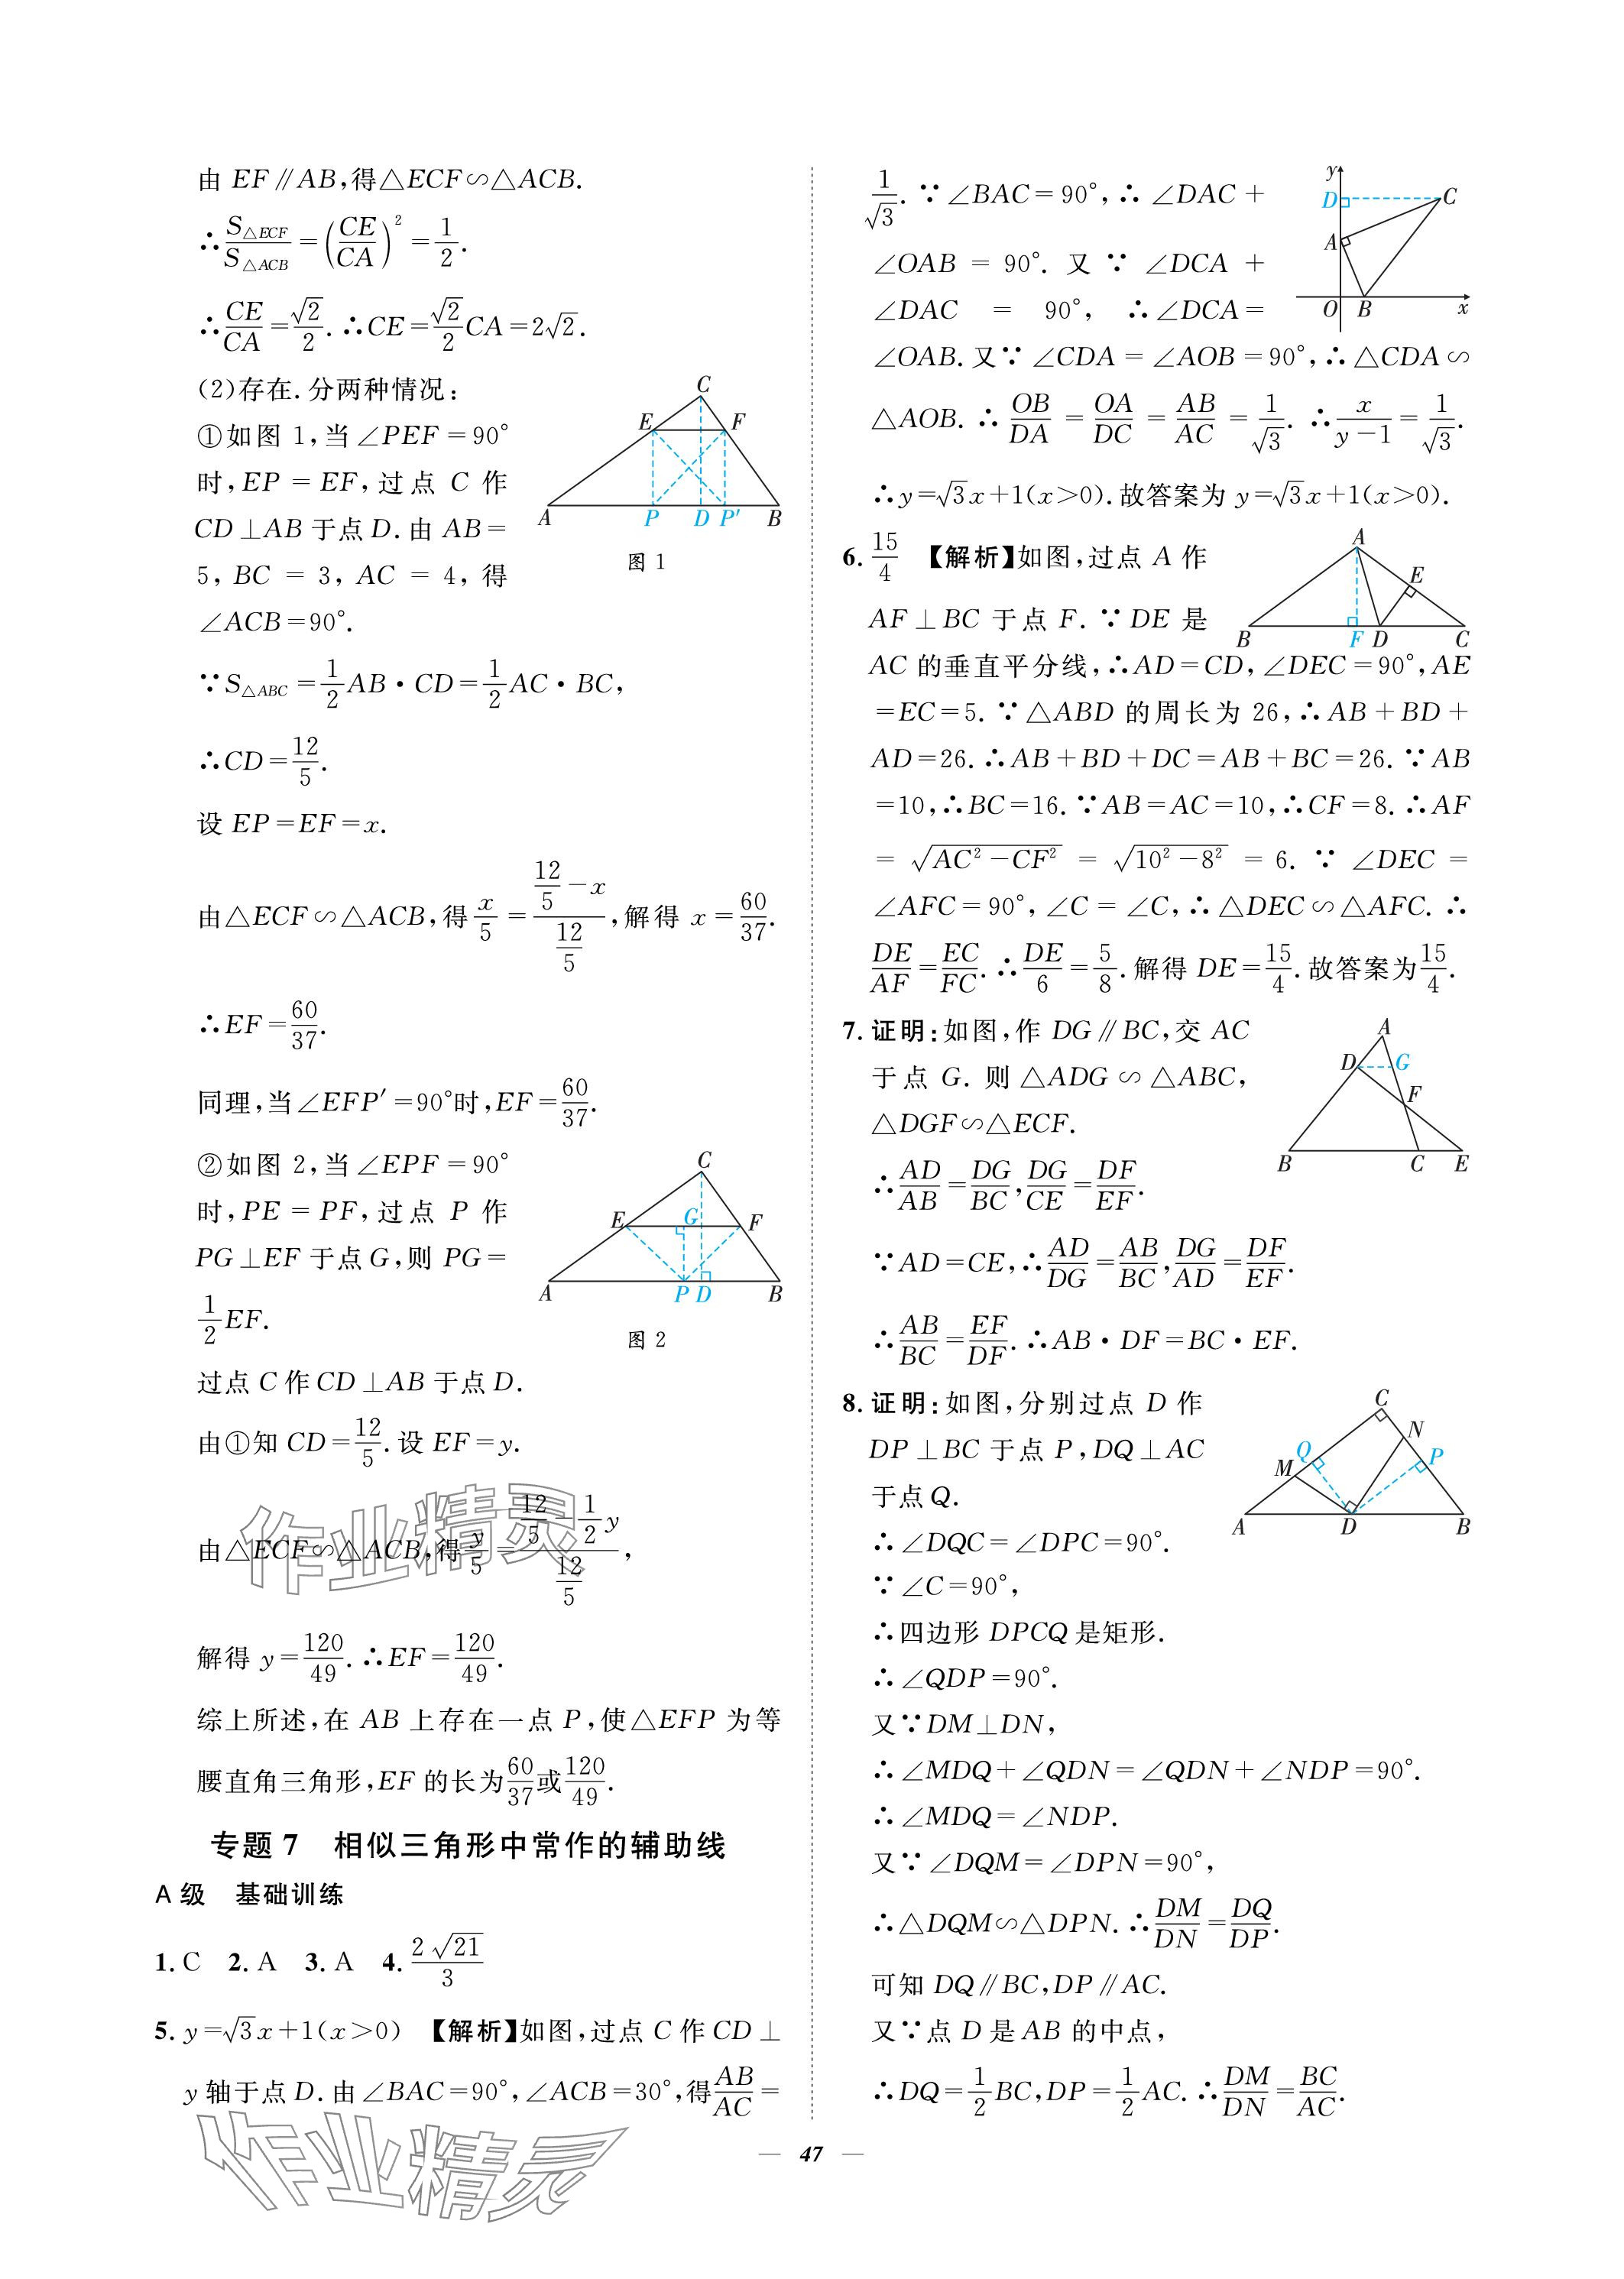 由 EF∥AB,得△ECF∽△ACB.
∴S△ECF/S△ACB=(CE/CA)²=1/2.
∴CE/CA=√2/2.∴CE=√2/2CA=2√2.
(2)存在.分两种情况:
①如图 1,当∠PEF=90°
时,EP=EF,过点 C 作
CD⊥AB 于点 D.由 AB=
5,BC=3,AC=4,得
∠ACB=90°.
C
E
F
A
P
D
P′
B
图 1
∵S△ABC=1/2AB·CD=1/2AC·BC,
∴CD=12/5.
设 EP=EF=x.
由△ECF∽△ACB,得x/5=(12/5-x)/(12/5),解得 x=60/37.
∴EF=60/37.
同理,当∠EFP′=90°时,EF=60/37.
②如图 2,当∠EPF=90°
时,PE=PF,过点 P 作
PG⊥EF 于点 G,则 PG=
1/2EF.
C
E
G
F
A
P
D
B
图 2
过点 C 作 CD⊥AB 于点 D.
由①知 CD=12/5.设 EF=y.
由△ECF∽△ACB,得y/5=(12/5-1/2y)/(12/5),
解得 y=120/49.∴EF=120/49.
综上所述,在 AB 上存在一点 P,使△EFP 为等
腰直角三角形,EF 的长为60/37或120/49.
专题 7 相似三角形中常作的辅助线
A 级 基础训练
1. C 2. A 3. A 4. 2√21/3
5. y=√3x+1(x>0) 【解析】如图,过点 C 作 CD⊥
y 轴于点 D.由∠BAC=90°,∠ACB=30°,得AB/AC=
1/√3.∵∠BAC=90°,∴∠DAC+
∠OAB=90°.又∵∠DCA+
∠DAC=90°,∴∠DCA=
y
D
C
A
O
B
x
∠OAB.又∵∠CDA=∠AOB=90°,∴△CDA∽
△AOB.∴OB/DA=OA/DC=AB/AC=1/√3.∴x/(y-1)=1/√3.
∴y=√3x+1(x>0).故答案为 y=√3x+1(x>0).
6. 15/4 【解析】如图,过点 A 作
AF⊥BC 于点 F.∵DE 是
A
E
B
F
D
C
AC 的垂直平分线,∴AD=CD,∠DEC=90°,AE
=EC=5.∵△ABD 的周长为 26,∴AB+BD+
AD=26.∴AB+BD+DC=AB+BC=26.∵AB
=10,∴BC=16.∵AB=AC=10,∴CF=8.∴AF
=√(AC²-CF²)=√(10²-8²)=6.∵∠DEC=
∠AFC=90°,∠C=∠C,∴△DEC∽△AFC.∴
DE/AF=EC/FC.∴DE/6=5/8.解得 DE=15/4.故答案为15/4.
7. 证明:如图,作 DG∥BC,交 AC
于点 G.则△ADG∽△ABC,
△DGF∽△ECF.
A
D
G
F
B
C
E
∴AD/AB=DG/BC,DG/CE=DF/EF.
∵AD=CE,∴AD/DG=AB/BC,DG/AD=DF/EF.
∴AB/BC=EF/DF.∴AB·DF=BC·EF.
8. 证明:如图,分别过点 D 作
DP⊥BC 于点 P,DQ⊥AC
于点 Q.
C
N
Q
P
M
A
D
B
∴∠DQC=∠DPC=90°.
∵∠C=90°,
∴四边形 DPCQ 是矩形.
∴∠QDP=90°.
又∵DM⊥DN,
∴∠MDQ+∠QDN=∠QDN+∠NDP=90°.
∴∠MDQ=∠NDP.
又∵∠DQM=∠DPN=90°,
∴△DQM∽△DPN.∴DM/DN=DQ/DP.
可知 DQ∥BC,DP∥AC.
又∵点 D 是 AB 的中点,
∴DQ=1/2BC,DP=1/2AC.∴DM/DN=BC/AC.
— 47 —
作业精灵
作业精灵